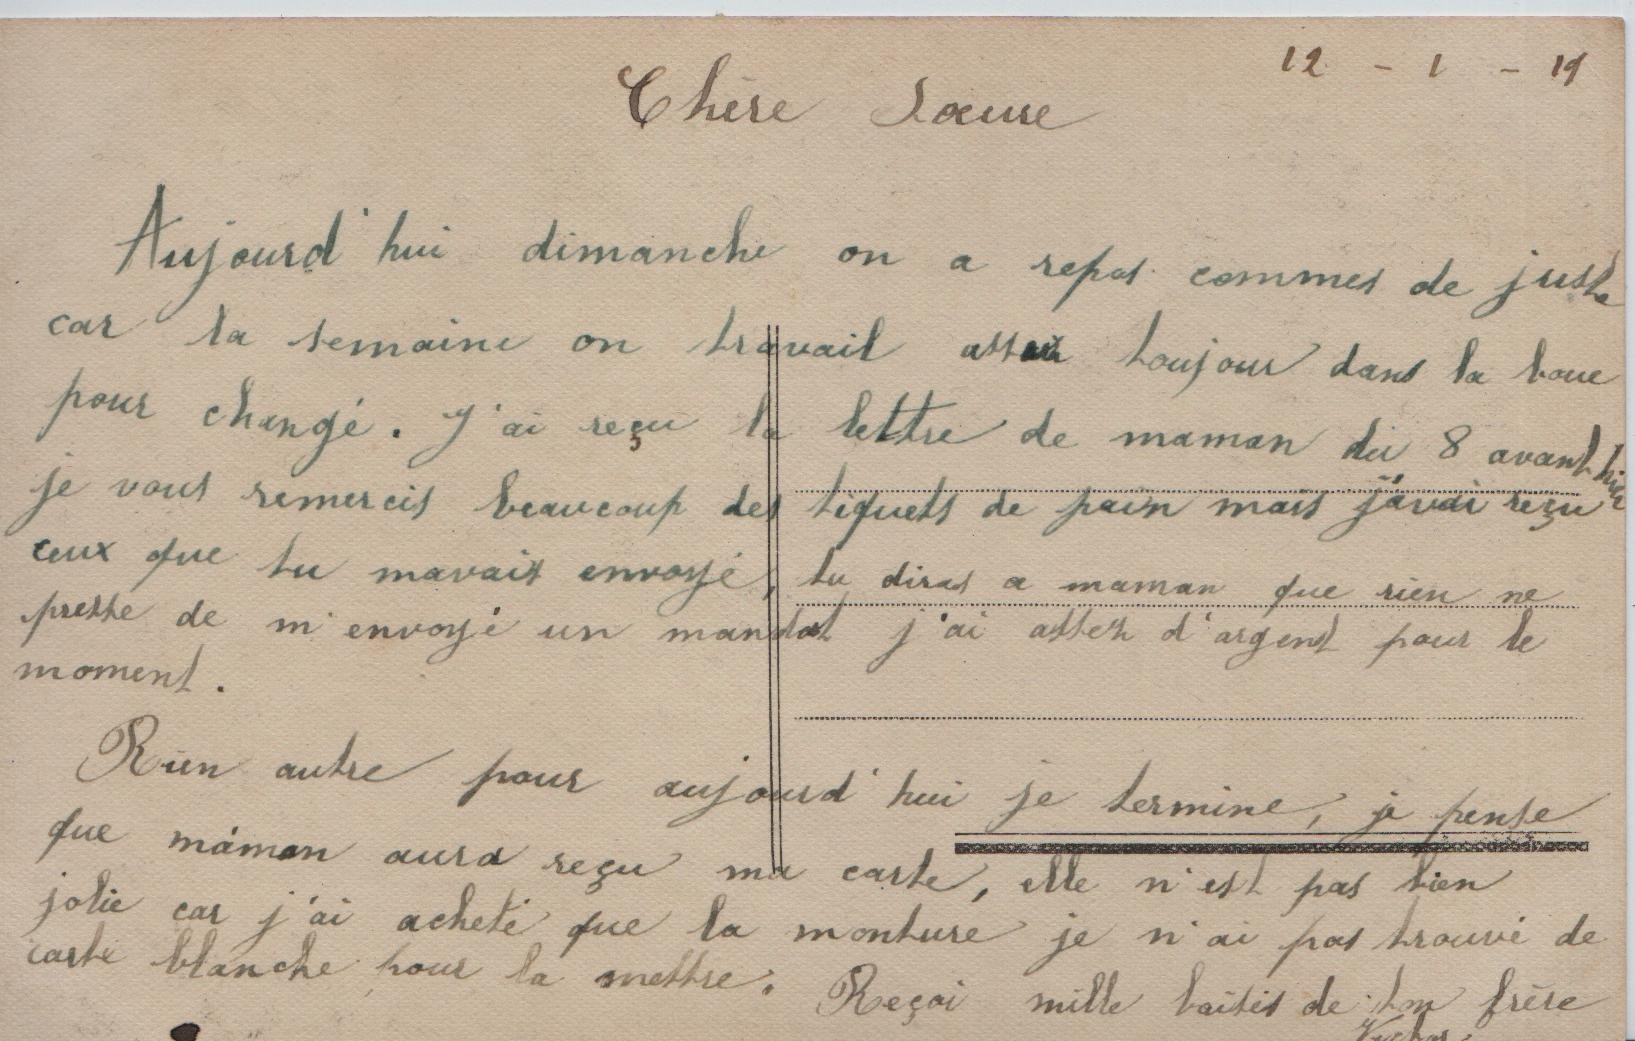 12 - 1 - 19
Chère Sœure
Aujourd'hui dimanche on a repos commes de juste
car la semaine on travail assez toujour dans la boue
pour changé. J'ai reçu la lettre de maman du 8 avant hier
je vous remercis beaucoup des tiquets de pain mais j'avai reçu
ceux que tu mavait envoyé, tu diras a maman que rien ne
presse de m'envoyé un mandat j'ai assez d'argent pour le
moment.
Rien autre pour aujourd'hui je termine, je pense
que maman aura reçu ma carte, elle n'est pas bien
jolie car j'ai acheté que la monture je n'ai pas trouvé de
carte blanche pour la mettre. Reçoi mille baisés de ton frère